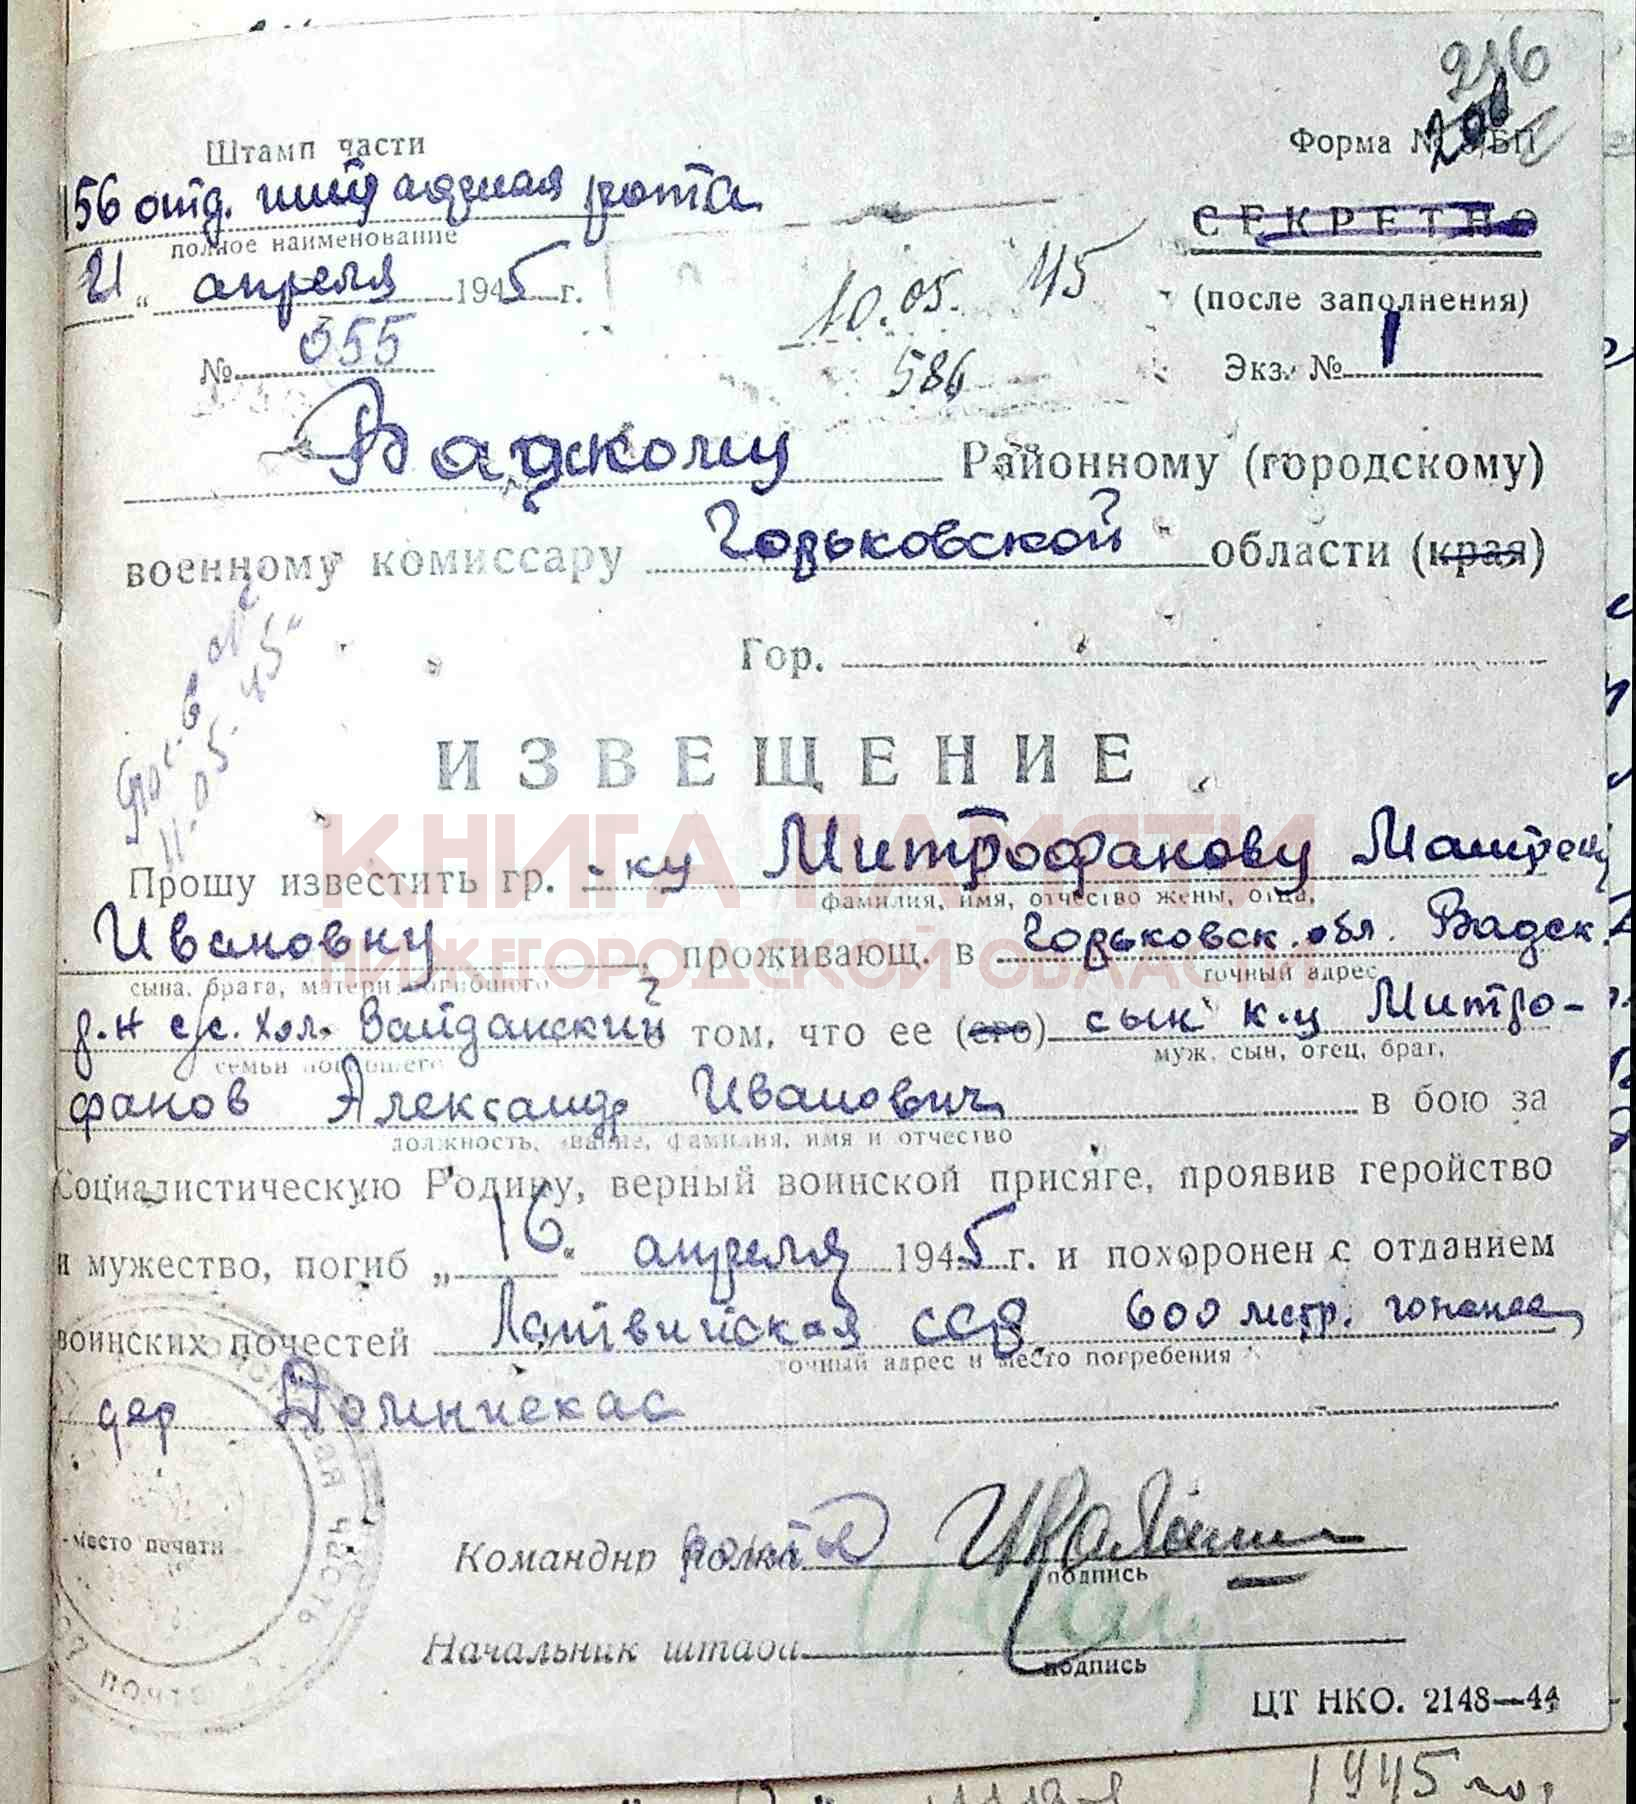 216
Штамп части
Форма №
156 отд. штрафная рота
СЕКРЕТНО
полное наименование
21 " апреля 1945 г.
10.05. 45
(после заполнения)
№ 355
586
Экз. № 1
Вадскому Районному (городскому)
военному комиссару Горьковской области (края)
Гор.
11-05-45
ИЗВЕЩЕНИЕ
КНИГА ПАМЯТИ
НИЖЕГОРОДСКОЙ ОБЛАСТИ
Прошу известить гр. -ку Митрофанову Матрену
фамилия, имя, отчество жены, отца,
Ивановну, проживающ. в Горьковск. обл. Вадск.
сына, брата, матери погибшего
точный адрес
р.н с/с. Хол. Вайданский о том, что ее (его) сын к-ц Митро-
семьи погибшего
муж, сын, отец, брат,
фанов Александр Иванович в бою за
должность, звание, фамилия, имя и отчество
Социалистическую Родину, верный воинской присяге, проявив геройство
и мужество, погиб „16. апреля 1945 г. и похоронен с отданием
воинских почестей Латвийская ССР 600 метр.
точный адрес и место погребения
дер
место печати
Командир роты
подпись
Начальник штаба
подпись
ЦТ НКО. 2148—44
1945